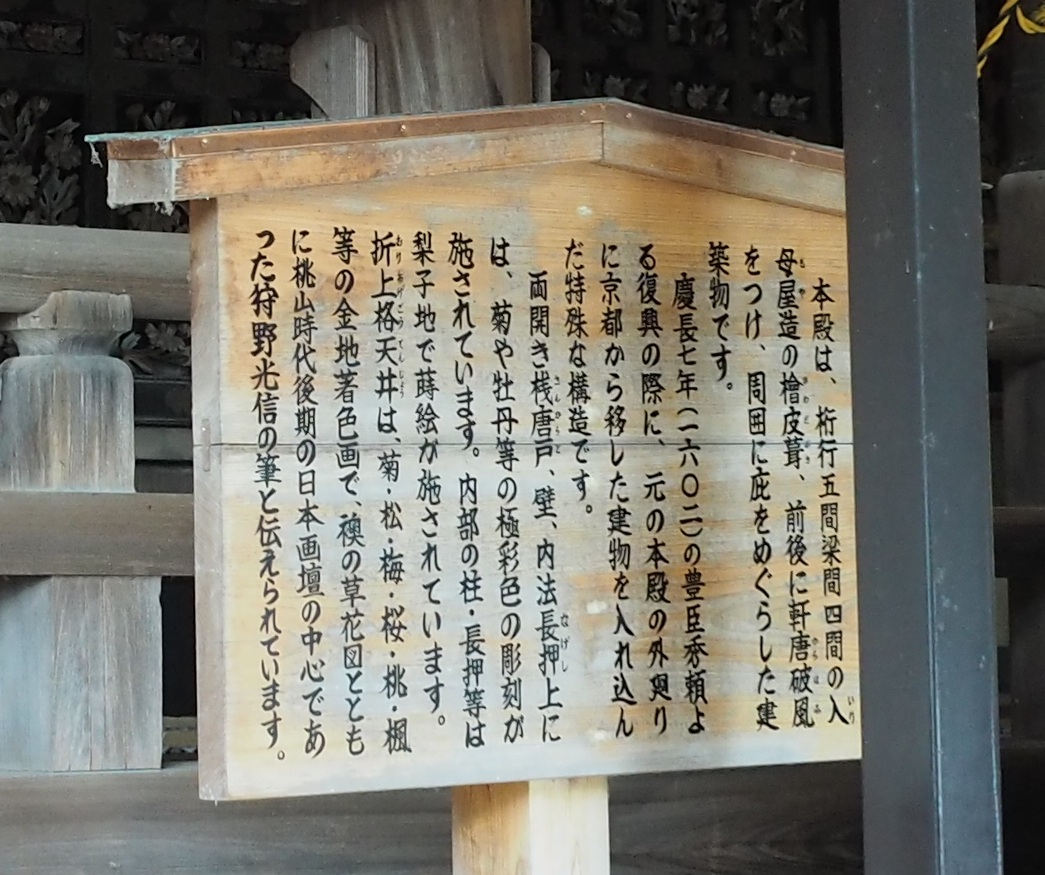 本殿は、桁行五間梁間四間の入
母屋造の檜皮葺、前後に軒唐破風
をつけ、周囲に庇をめぐらした建
築物です。
慶長七年(一六〇二)の豊臣秀頼よ
る復興の際に、元の本殿の外廻り
に京都から移した建物を入れ込ん
だ特殊な構造です。
両開き桟唐戸、壁、内法長押上に
は、菊や牡丹等の極彩色の彫刻が
施されています。内部の柱・長押等は
梨子地で蒔絵が施されています。
折上格天井は、菊・松・梅・桜・桃・楓
等の金地著色画で、襖の草花図ととも
に桃山時代後期の日本画壇の中心であ
った狩野光信の筆と伝えられています。